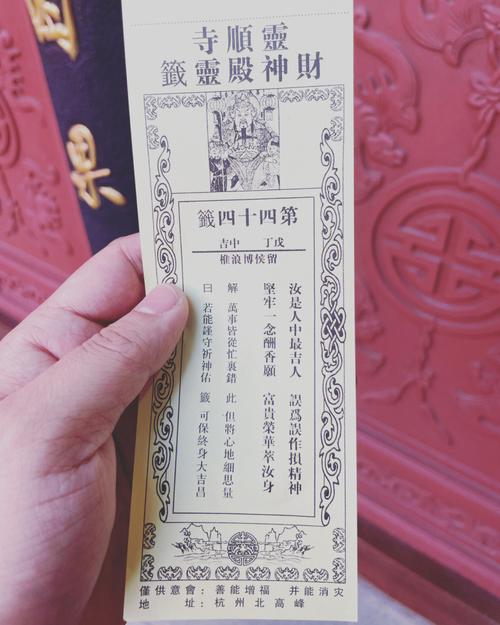 靈順寺
財神殿靈籤
第四十四籤
戊丁 中吉
留侯博浪椎
汝是人中最吉人 誤爲誤作損精神
堅牢一念酬香願 富貴榮華萃汝身
解 萬事皆從忙裏錯 此 但將心地細思量
曰 若能謹守祈神佑 籤 可保終身大吉昌
僅供意會: 善能增福 并能消灾
地址: 杭州北高峰